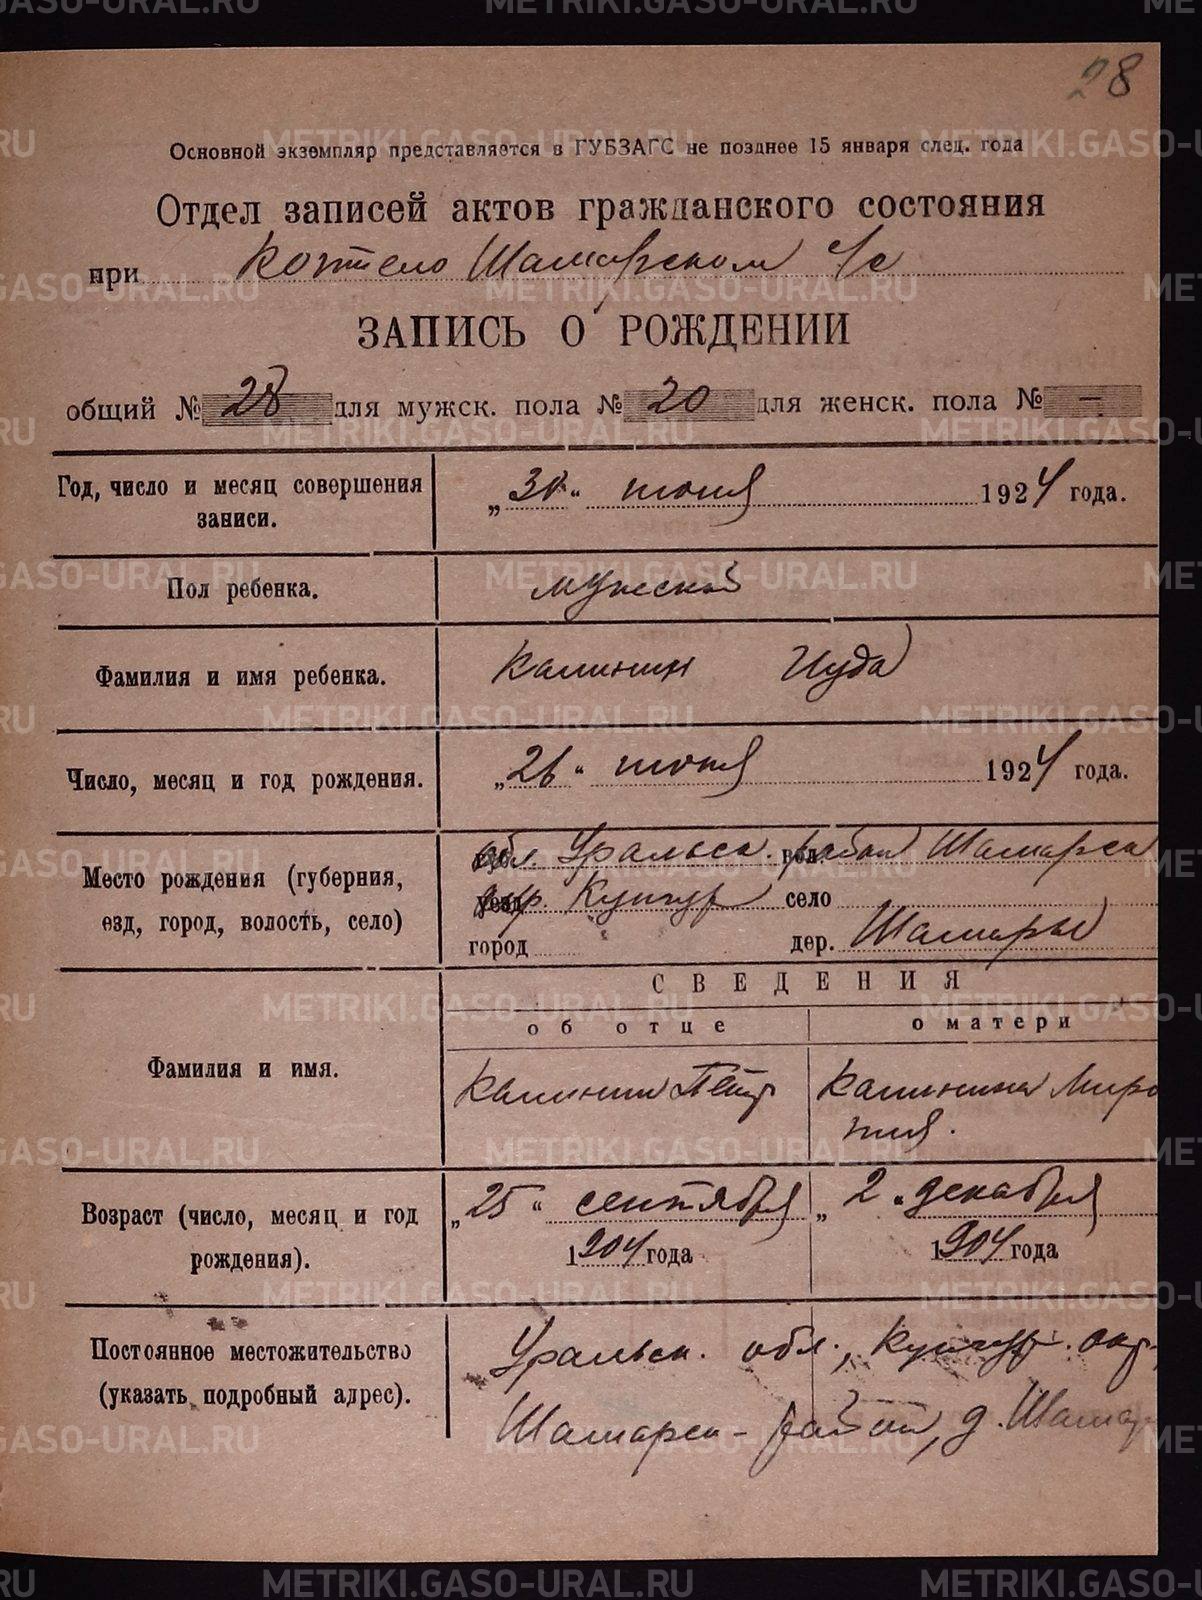 28
Основной экземпляр представляется в ГУБЗАГС не позднее 15 января след. года
Отдел записей актов гражданского состояния
при Коптело Шамарском с/с
ЗАПИСЬ О РОЖДЕНИИ
общий № 28 для мужск. пола № 20 для женск. пола № —
Год, число и месяц совершения записи.
„30“ июня 1924 года.
Пол ребенка.
мужской
Фамилия и имя ребенка.
Калинин Иуда
Число, месяц и год рождения.
„26“ июня 1924 года.
Место рождения (губерния,
езд, город, волость, село)
обл. Уральск. район Шамарск
окр. Кунгур село
город дер. Шамары
СВЕДЕНИЯ
об отце о матери
Фамилия и имя.
Калинин Пётр Калинина Миро
пия.
Возраст (число, месяц и год
рождения).
„25“ сентября „2“ декабря
1904 года 1904 года
Постоянное местожительство
(указать подробный адрес).
Уральск. обл., Кунгур. окр.,
Шамарск - район, д. Шамар
METRIKI.GASO-URAL.RU